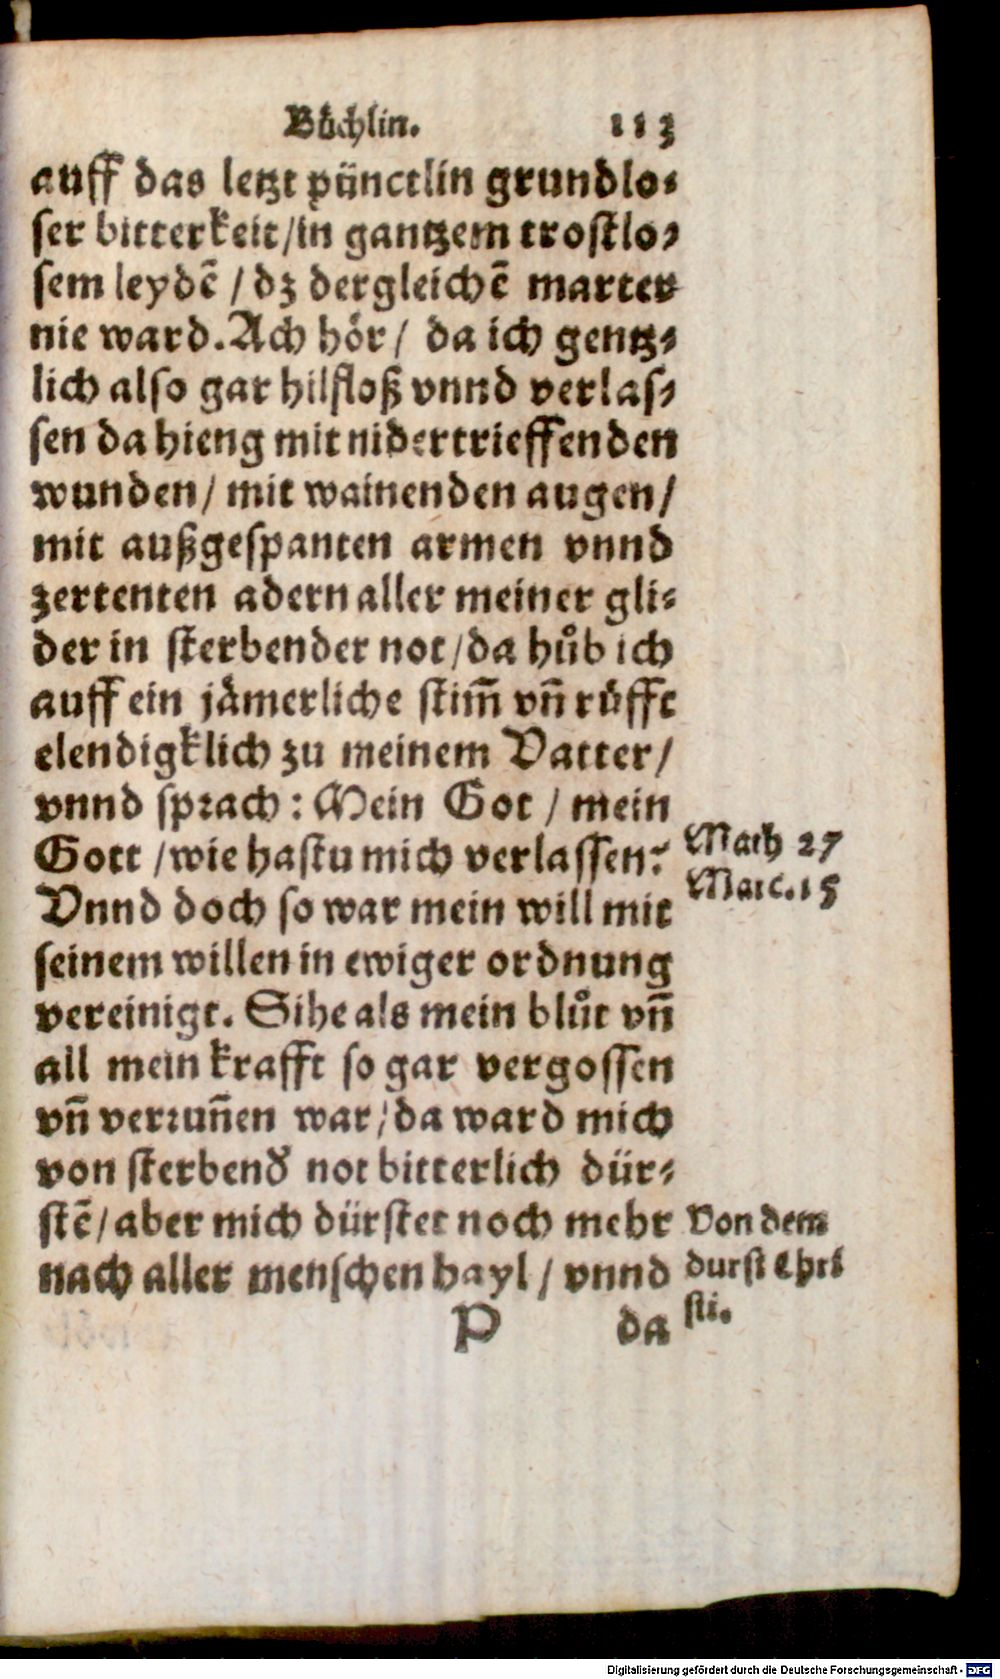 Bůchlin. 113
auff das letzt pünctlin grundlo⸗
ser bitterkeit/in gantzem trostlo⸗
sem leydē / dz dergleichē marter
nie ward. Ach hör / da ich gentz⸗
lich also gar hilfloß vnnd verlas⸗
sen da hieng mit nidertrieffenden
wunden / mit wainenden augen /
mit außgespanten armen vnnd
zertenten adern aller meiner gli⸗
der in sterbender not / da hůb ich
auff ein jämerliche stim̃ vñ růfft
elendigklich zu meinem Vatter /
vnnd sprach: Mein Got / mein
Gott / wie hastu mich verlassen?
Math 27
Marc. 15
Vnnd doch so war mein will mit
seinem willen in ewiger ordnung
vereinigt. Sihe als mein blůt vñ
all mein krafft so gar vergossen
vñ verruñen war / da ward mich
von sterbend' not bitterlich dür⸗
stē / aber mich dürstet noch mehr
nach aller menschen hayl / vnnd
Von dem
durst Chri
sti.
P da
Digitalisierung gefördert durch die Deutsche Forschungsgemeinschaft - DFG